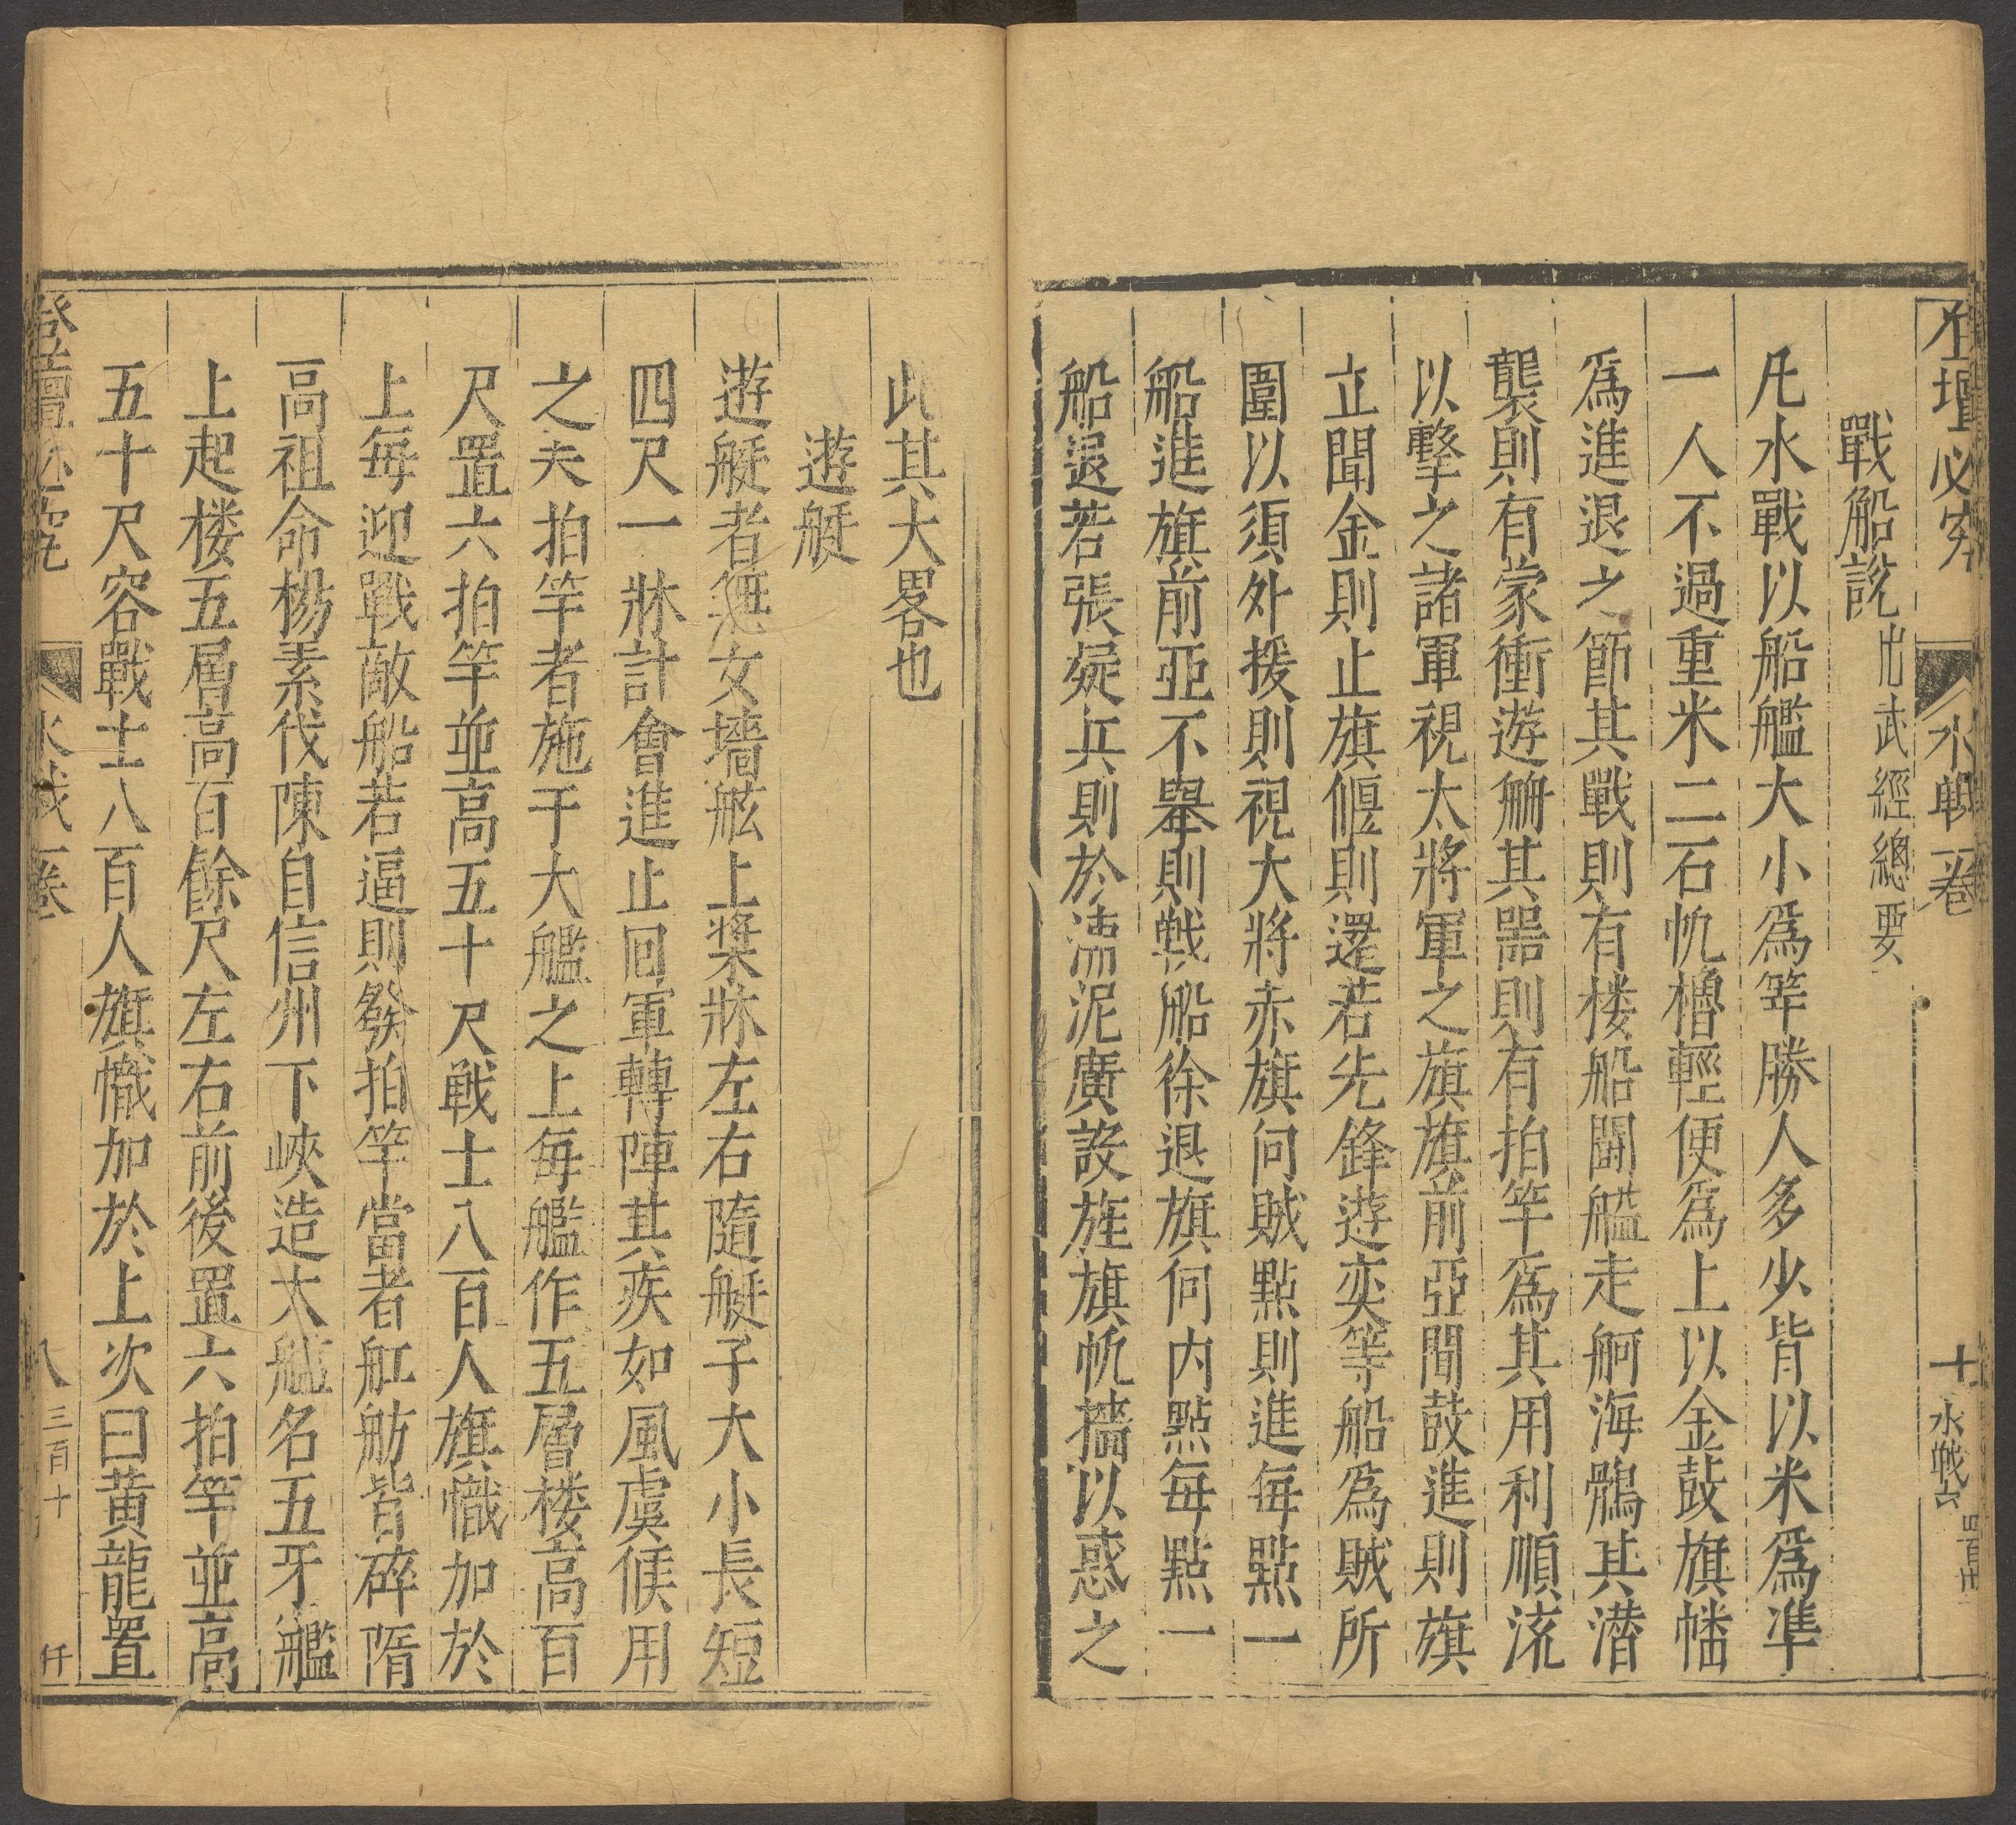 登壇必究 水戰一卷 十 水戰六 四百廿
戰船說出武經總要
凡水戰以船艦大小爲等勝人多少皆以米爲準
一人不過重米二石帆櫓輕便爲上以金鼓旗幡
爲進退之節其戰則有楼船鬪艦走舸海鶻其潛
襲則有蒙衝遊艈其器則有拍竿爲其用利順流
以擊之諸軍視太將軍之旗旗前亞聞鼓進則旗
立聞金則止旗偃則還若先鋒遊奕等船爲賊所
圍以須外援則視大將赤旗向賊點則進每點一
船進旗前亞不舉則戦船徐退旗向内點每點一
船退若張疑兵則於浦泥廣設旌旗帆檣以惑之
此其大畧也
遊艇
遊艇者無女墻舷上槳牀左右隨艇子大小長短
四尺一牀計會進止回軍轉陣其疾如風虞候用
之夫拍竿者施于大艦之上每艦作五層楼高百
尺置六拍竿並高五十尺戦士八百人旗幟加於
上每迎戰敵船若逼則發拍竿當者舡舫皆碎隋
高祖命楊素伐陳自信州下峽造大艦名五牙艦
上起楼五層高百餘尺左右前後置六拍竿並高
五十尺容戰士八百人旗幟加於上次曰黄龍置
登壇必究 水戰一卷 八 三百十 仟